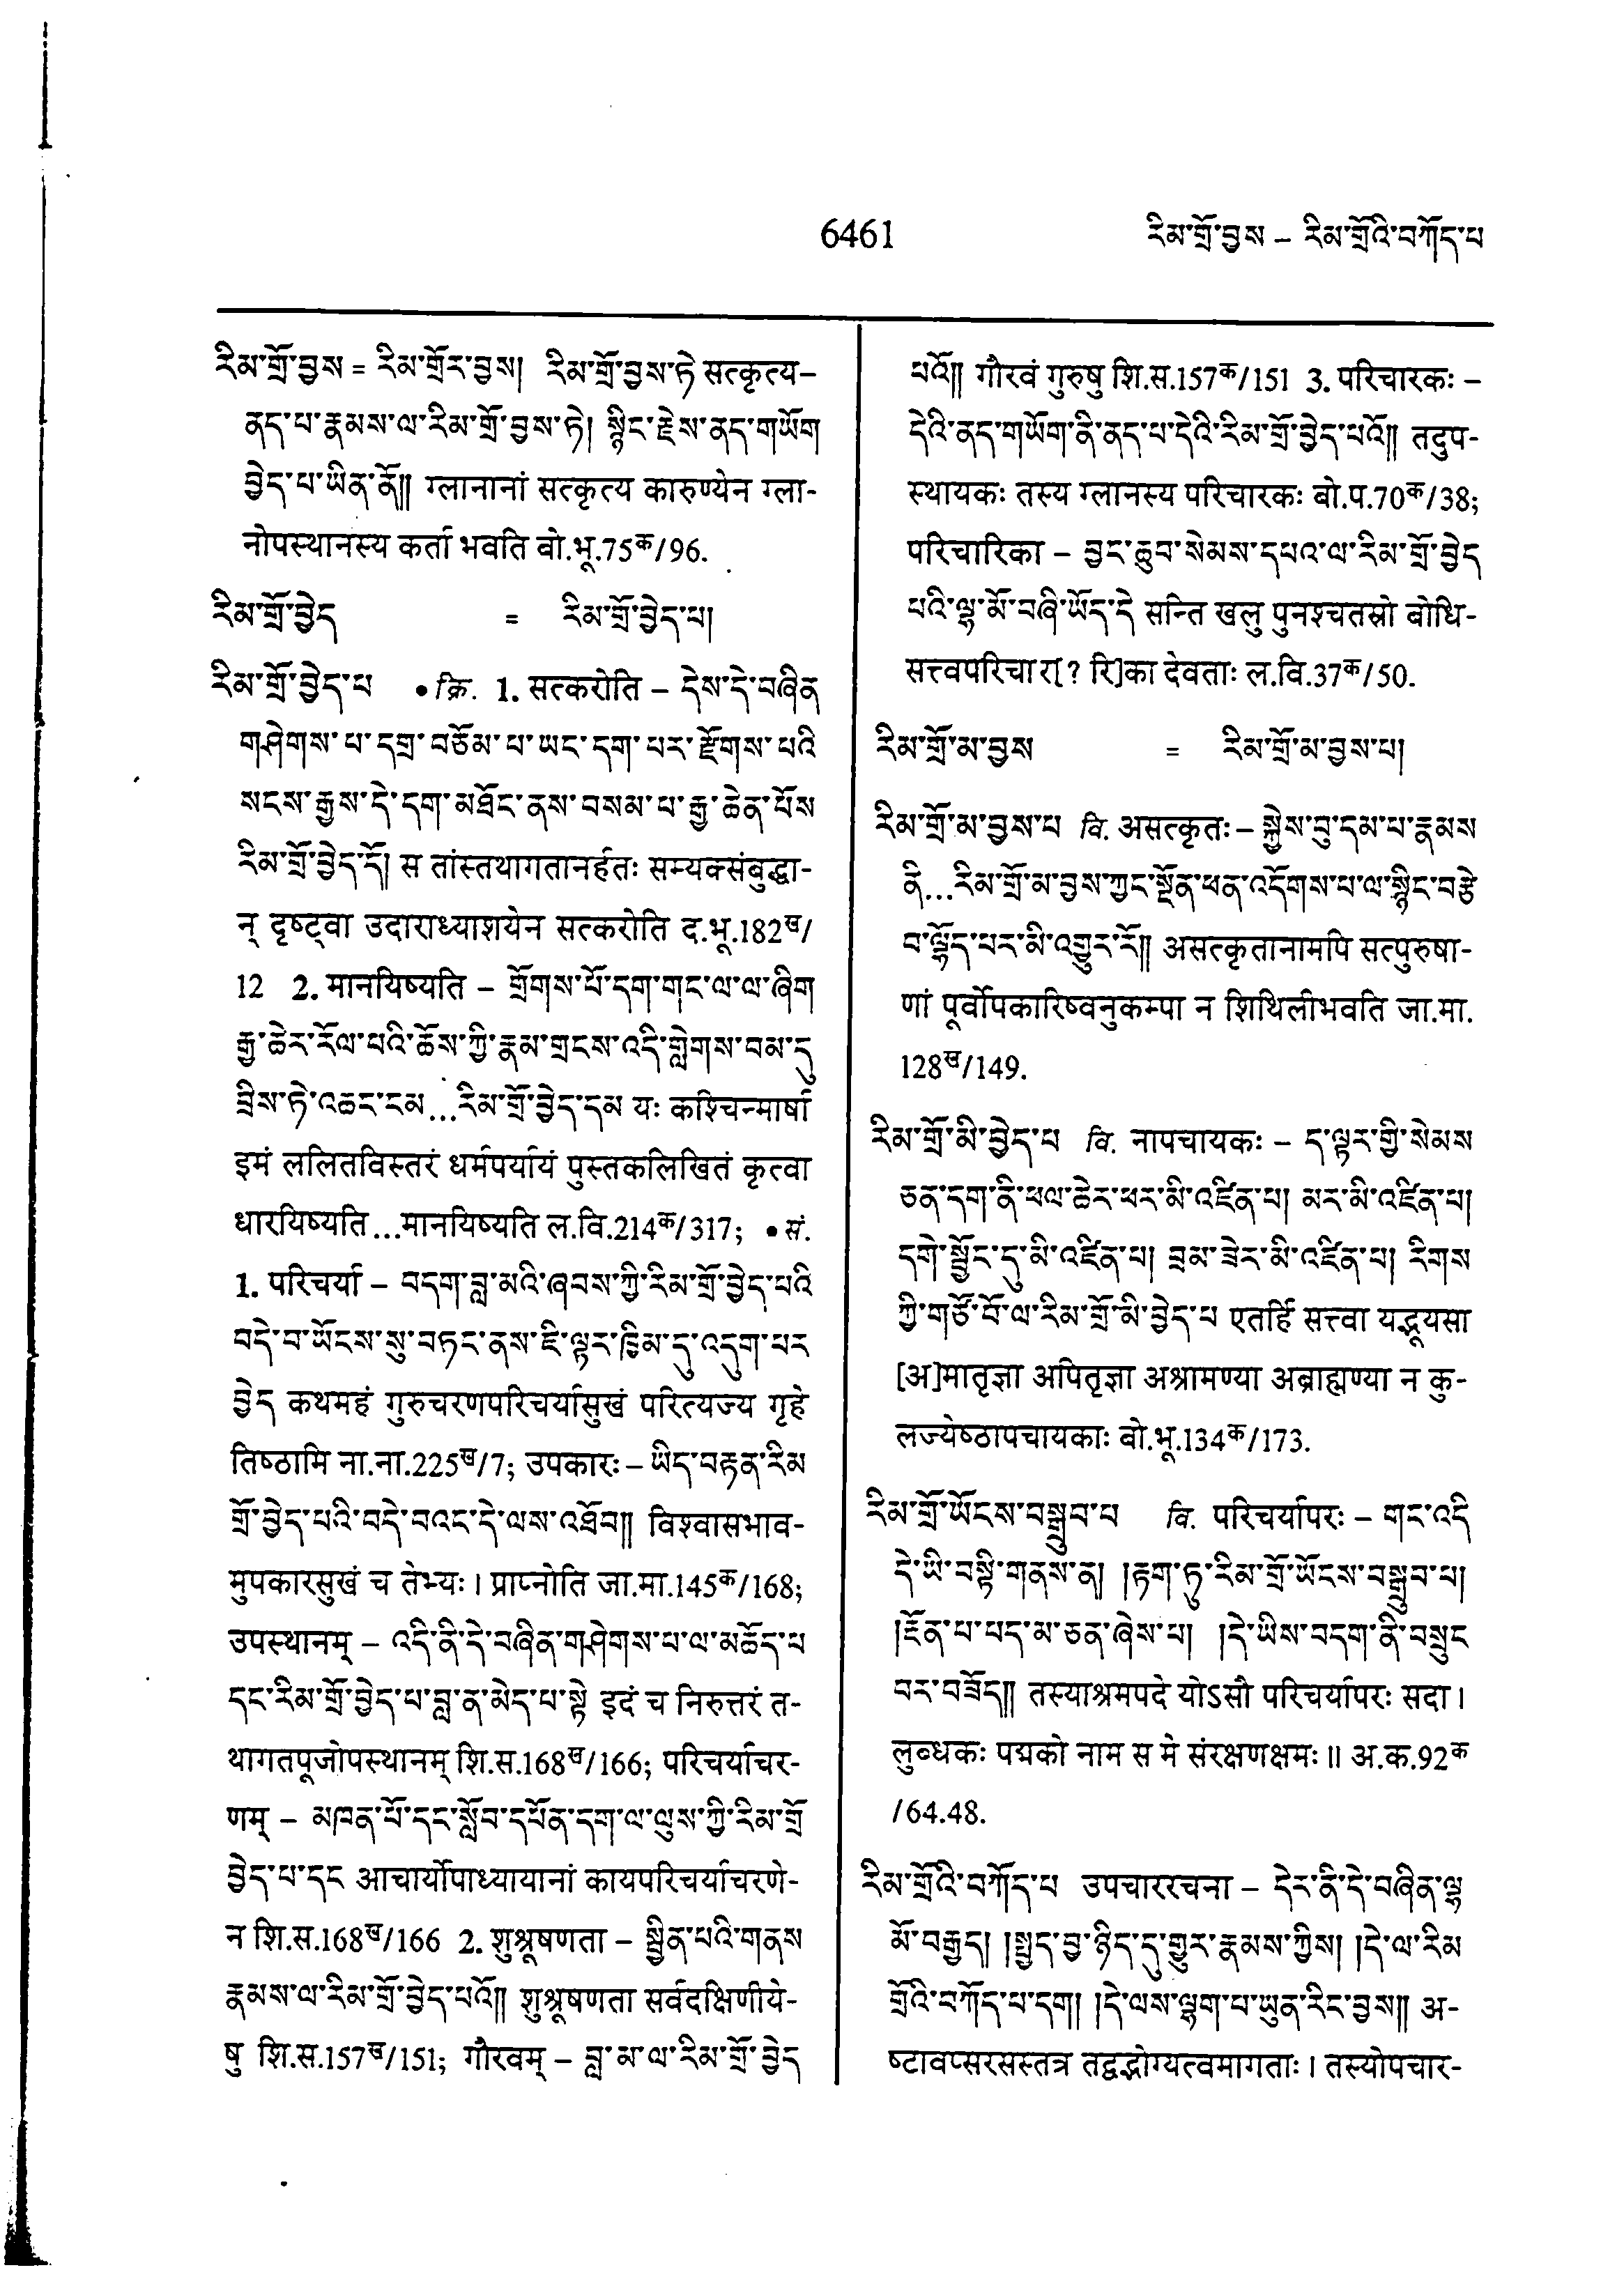 6461
རིམ་གྲོ་བྱས – རིམ་གྲོའི་བཀོད་པ
རིམ་གྲོ་བྱས = རིམ་གྲོར་བྱས། རིམ་གྲོ་བྱས་ཏེ सत्कृत्य–
ནད་པ་རྣམས་ལ་རིམ་གྲོ་བྱས་ཏེ། སྙིང་རྗེས་ནད་གཡོག
བྱེད་པ་ཡིན་ནོ།། ग्लानानां सत्कृत्य कारुण्येन ग्ला-
नोपस्थानस्य कर्ता भवति बो.भू.75क/96.
རིམ་གྲོ་བྱེད = རིམ་གྲོ་བྱེད་པ།
རིམ་གྲོ་བྱེད་པ • क्रि. 1. सत्करोति – དེས་དེ་བཞིན
གཤེགས་པ་དགྲ་བཅོམ་པ་ཡང་དག་པར་རྫོགས་པའི
སངས་རྒྱས་དེ་དག་མཐོང་ནས་བསམ་པ་རྒྱ་ཆེན་པོས
རིམ་གྲོ་བྱེད་དོ། स तांस्तथागतानर्हतः सम्यक्संबुद्धा-
न् दृष्ट्वा उदाराध्याशयेन सत्करोति द.भू.182ख/
12 2. मानयिष्यति – གྲོགས་པོ་དག་གང་ལ་ལ་ཞིག
རྒྱ་ཆེར་རོལ་པའི་ཆོས་ཀྱི་རྣམ་གྲངས་འདི་གླེགས་བམ་དུ
བྲིས་ཏེ་འཆང་ངམ...རིམ་གྲོ་བྱེད་དམ यः कश्चिन्मार्षा
इमं ललितविस्तरं धर्मपर्यायं पुस्तकलिखितं कृत्वा
धारयिष्यति...मानयिष्यति ल.वि.214क/317; • सं.
1. परिचर्या – བདག་བླ་མའི་ཞབས་ཀྱི་རིམ་གྲོ་བྱེད་པའི
བདེ་བ་ཡོངས་སུ་བཏང་ནས་ཇི་ལྟར་ཁྱིམ་དུ་འདུག་པར
བྱེད कथमहं गुरुचरणपरिचर्यासुखं परित्यज्य गृहे
तिष्ठामि ना.ना.225ख/7; उपकारः – ཡིད་བརྟན་རིམ
གྲོ་བྱེད་པའི་བདེ་བའང་དེ་ལས་འཐོབ།། विश्वासभाव-
मुपकारसुखं च तेभ्यः । प्राप्नोति जा.मा.145क/168;
उपस्थानम् – འདི་ནི་དེ་བཞིན་གཤེགས་པ་ལ་མཆོད་པ
དང་རིམ་གྲོ་བྱེད་པ་བླ་ན་མེད་པ་སྟེ इदं च निरुत्तरं त-
थागतपूजोपस्थानम् शि.स.168ख/166; परिचर्याचर-
णम् – མཁན་པོ་དང་སློབ་དཔོན་དག་ལ་ལུས་ཀྱི་རིམ་གྲོ
བྱེད་པ་དང आचार्योपाध्यायानां कायपरिचर्याचरणे-
न शि.स.168ख/166 2. शुश्रूषणता – སྦྱིན་པའི་གནས
རྣམས་ལ་རིམ་གྲོ་བྱེད་པའོ།། शुश्रूषणता सर्वदक्षिणीये-
षु शि.स.157ख/151; गौरवम् – བླ་མ་ལ་རིམ་གྲོ་བྱེད
པའོ།། गौरवं गुरुषु शि.स.157क/151 3. परिचारकः –
དེའི་ནད་གཡོག་ནི་ནད་པ་དེའི་རིམ་གྲོ་བྱེད་པའོ།། तदुप-
स्थायकः तस्य ग्लानस्य परिचारकः बो.प.70क/38;
परिचारिका – བྱང་ཆུབ་སེམས་དཔའ་ལ་རིམ་གྲོ་བྱེད
པའི་ལྷ་མོ་བཞི་ཡོད་དེ सन्ति खलु पुनश्चतस्रो बोधि-
सत्त्वपरिचार[? रि]का देवताः ल.वि.37क/50.
རིམ་གྲོ་མ་བྱས = རིམ་གྲོ་མ་བྱས་པ།
རིམ་གྲོ་མ་བྱས་པ वि. असत्कृतः – སྐྱེས་བུ་དམ་པ་རྣམས
ནི...རིམ་གྲོ་མ་བྱས་ཀྱང་སྔོན་ཕན་འདོགས་པ་ལ་སྙིང་བརྩེ
བ་ལྷོད་པར་མི་འགྱུར་རོ།། असत्कृतानामपि सत्पुरुषा-
णां पूर्वोपकारिष्वनुकम्पा न शिथिलीभवति जा.मा.
128ख/149.
རིམ་གྲོ་མི་བྱེད་པ वि. नापचायकः – ད་ལྟར་གྱི་སེམས
ཅན་དག་ནི་ཕལ་ཆེར་ཕར་མི་འཛིན་པ། མར་མི་འཛིན་པ།
དགེ་སྦྱོང་དུ་མི་འཛིན་པ། བྲམ་ཟེར་མི་འཛིན་པ། རིགས
ཀྱི་གཙོ་བོ་ལ་རིམ་གྲོ་མི་བྱེད་པ एतर्हि सत्त्वा यद्भूयसा
[अ]मातृज्ञा अपितृज्ञा अश्रामण्या अब्राह्मण्या न कु-
लज्येष्ठापचायकाः बो.भू.134क/173.
རིམ་གྲོ་ཡོངས་བསྒྲུབ་པ वि. परिचर्यापरः – གང་འདི
དེ་ཡི་བསྟི་གནས་ན། །རྟག་ཏུ་རིམ་གྲོ་ཡོངས་བསྒྲུབ་པ།
།རྔོན་པ་པད་མ་ཅན་ཞེས་པ། །དེ་ཡིས་བདག་ནི་བསྲུང
བར་བཟོད།། तस्याश्रमपदे योऽसौ परिचर्यापरः सदा ।
लुब्धकः पद्मको नाम स मे संरक्षणक्षमः ॥ अ.क.92क
/64.48.
རིམ་གྲོའི་བཀོད་པ उपचाररचना – དེར་ནི་དེ་བཞིན་ལྷ
མོ་བརྒྱད། །སྤྱད་བྱ་ཉིད་དུ་གྱུར་རྣམས་ཀྱིས། །དེ་ལ་རིམ
གྲོའི་བཀོད་པ་དག། །དེ་ལས་ལྷག་པ་ཡུན་རིང་བྱས།། अ-
ष्टावप्सरसस्तत्र तद्वद्भोग्यत्वमागताः । तस्योपचार-